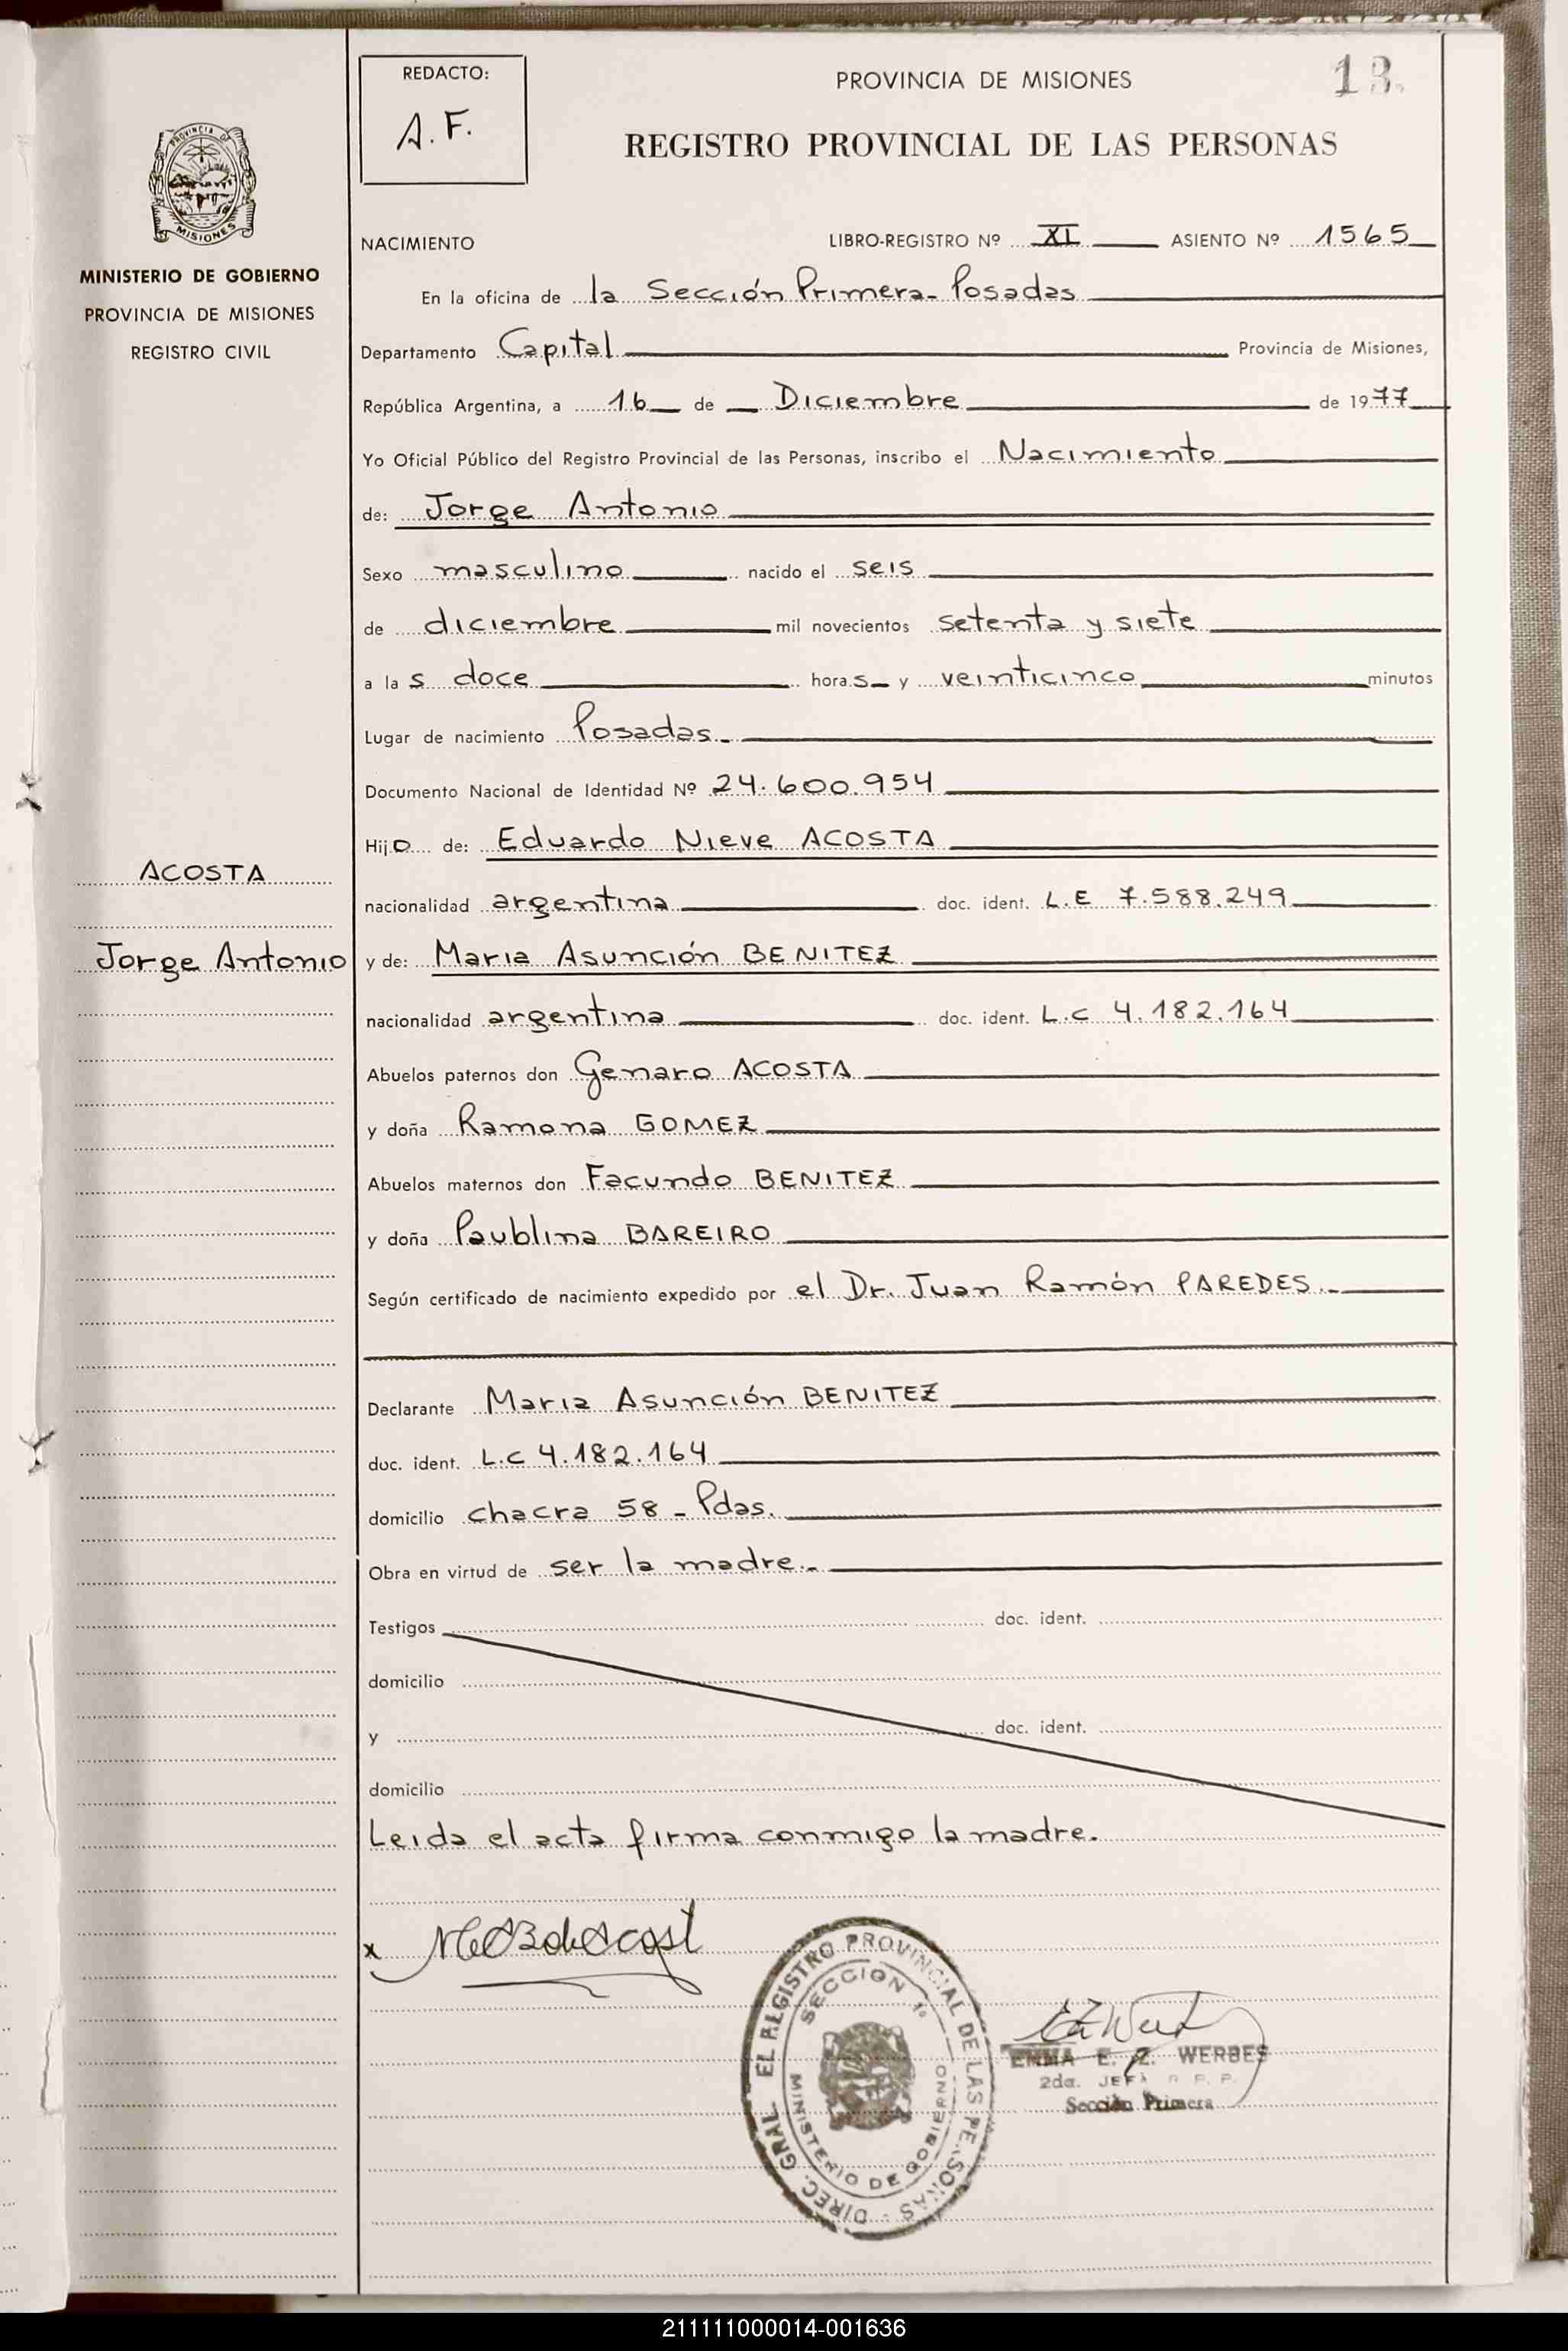 REDACTO:
A.F.
PROVINCIA DE MISIONES
13.
REGISTRO PROVINCIAL DE LAS PERSONAS
PROVINCIA DE
MISIONES
MINISTERIO DE GOBIERNO
PROVINCIA DE MISIONES
REGISTRO CIVIL
NACIMIENTO LIBRO-REGISTRO Nº XI ASIENTO Nº 1565
En la oficina de la Sección Primera - Posadas
Departamento Capital Provincia de Misiones,
República Argentina, a 16 de Diciembre de 1977
Yo Oficial Público del Registro Provincial de las Personas, inscribo el Nacimiento
de: Jorge Antonio
Sexo masculino nacido el seis
de diciembre mil novecientos setenta y siete
a la s doce horas y veinticinco minutos
Lugar de nacimiento Posadas.-
Documento Nacional de Identidad Nº 24.600.954
Hijo de: Eduardo Nieve ACOSTA
ACOSTA
nacionalidad argentina doc. ident. L.E 7.588.249
Jorge Antonio
y de: Maria Asunción BENITEZ
nacionalidad argentina doc. ident. L.C 4.182.164
Abuelos paternos don Genaro ACOSTA
y doña Ramona GOMEZ
Abuelos maternos don Facundo BENITEZ
y doña Paublina BAREIRO
Según certificado de nacimiento expedido por el Dr. Juan Ramón PAREDES.-
Declarante Maria Asunción BENITEZ
doc. ident. L.C 4.182.164
domicilio chacra 58 - Pdas.
Obra en virtud de ser la madre.-
Testigos doc. ident.
domicilio
y doc. ident.
domicilio
Leida el acta firma conmigo la madre.
x
DIREC. GRAL. EL REGISTRO PROVINCIAL DE LAS PERSONAS -
SECCION 1º
MINISTERIO DE GOBIERNO
EMMA E. Z. WERBES
2da. JEFA R. P. P.
Sección Primera
211111000014-001636